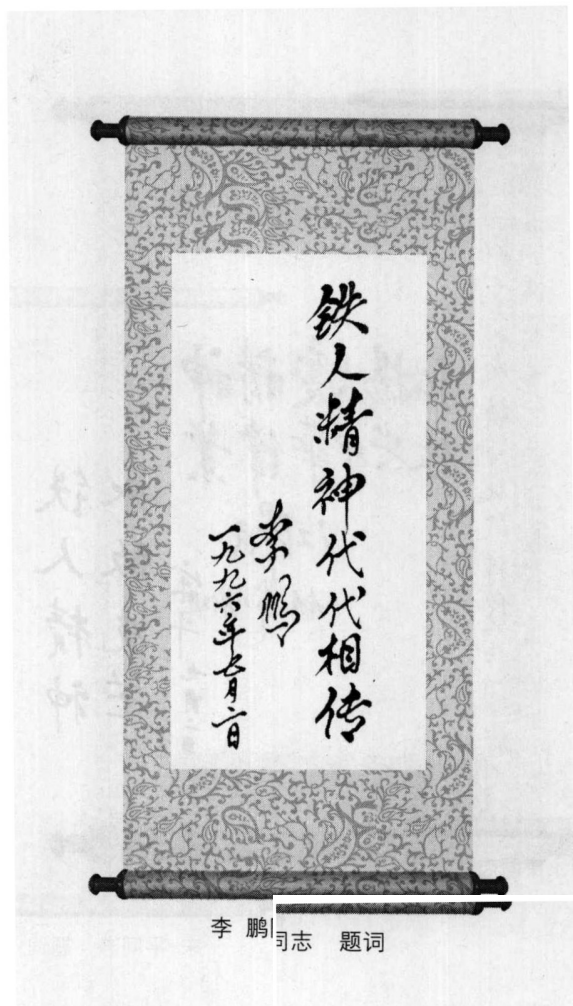 铁人精神代代相传
李鹏
一九九六年七月二日
李 鹏同志 题词